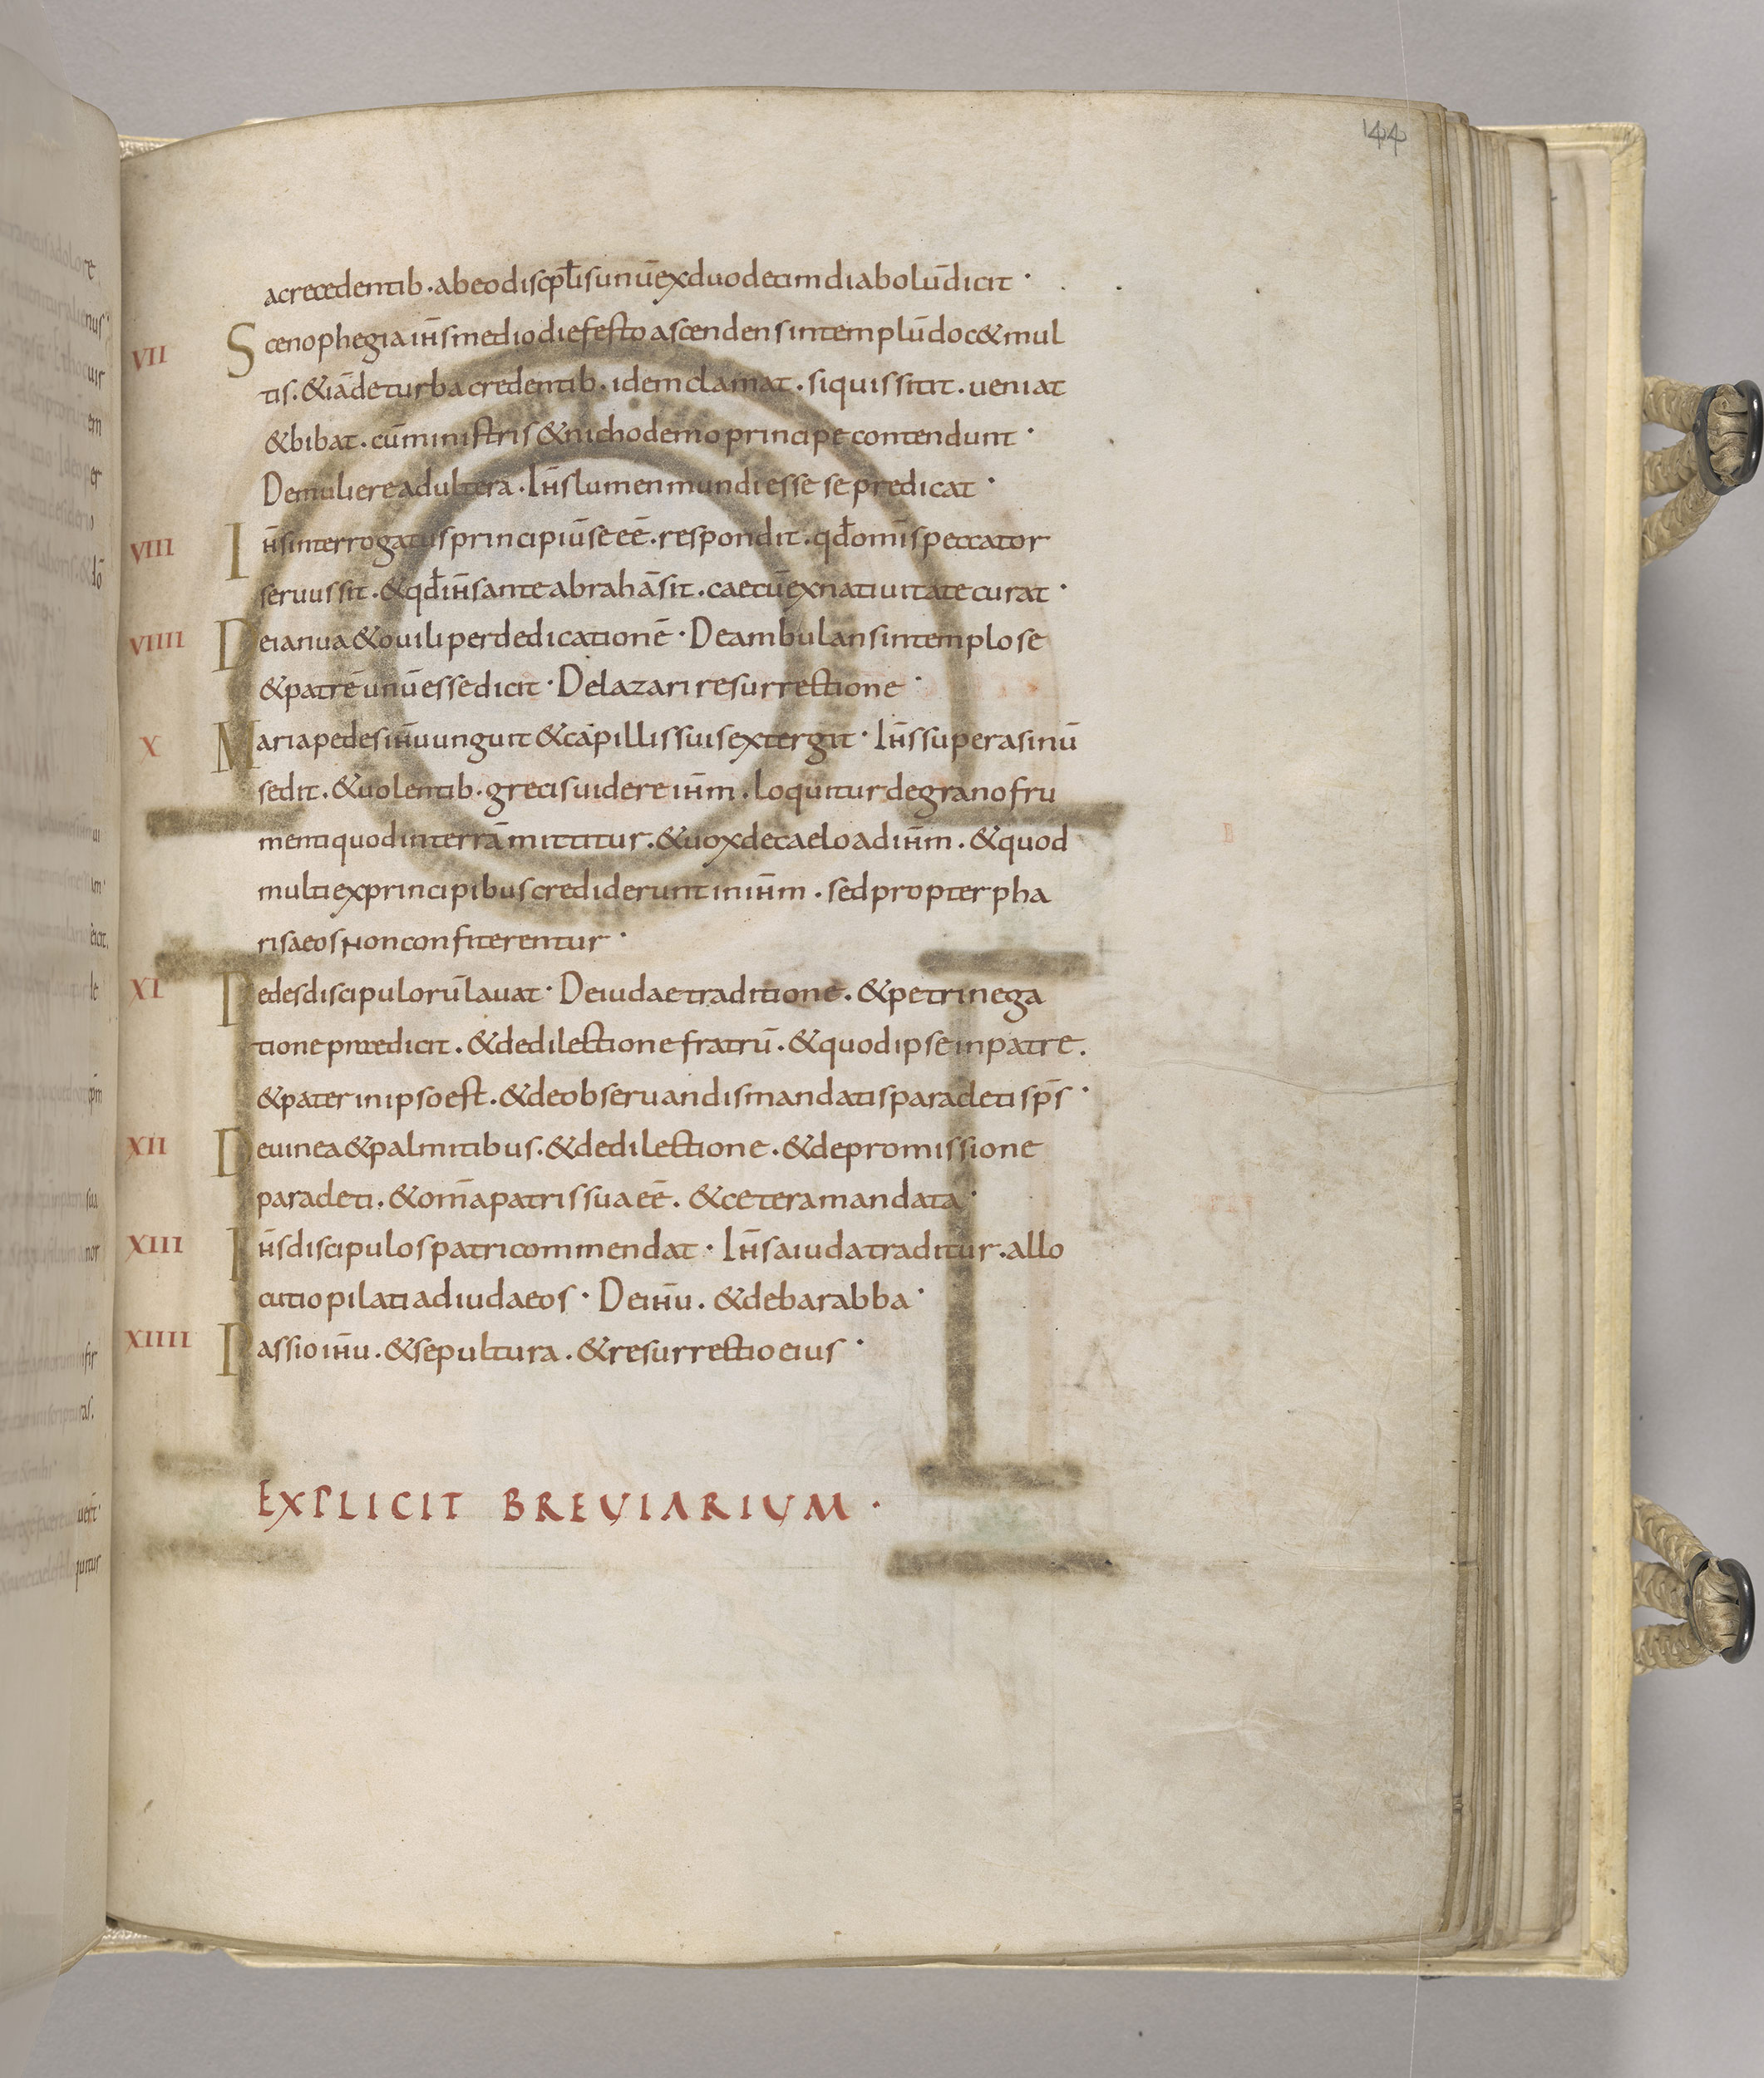 144
ac recedentib· ab eo discip̄lis unū ex duodecim diabolū dicit·
VII Scenophegia ih̄s mediodie festo ascendens in templū doc& mul
tis· & iā de turba credentib· idem clamat· si quis sitit· ueniat
& bibat· cū ministris & nichodemo principe contendunt·
De muliere adultera· Ih̄s lumen mundi esse se predicat·
VIII Ih̄s interrogatus principiū se eē· respondit· qd̄ om̄is peccator
seruus sit· & qd̄ ih̄s ante abrahā sit· caecū ex natiuitate curat·
VIIII De ianua & ouili per dedicationē· Deambulans in templo se
& patrē unū esse dicit· De lazari resurrectione·
X Maria pedes ih̄u unguit & capillis suis extergit· Ih̄s super asinū
sedit· & uolentib· grecis uidere ih̄m· loquitur de grano fru
menti quod in terrā mittitur· & uox de caelo ad ih̄m· & quod
multi ex principibus crediderunt in ih̄m· sed propter pha
risaeos non confiterentur·
XI Pedes discipulorū lauat· De iudae traditione· & petri nega
tione praedicit· & de dilectione fratrū· & quod ipse in patre·
& pater in ipso est· & de obseruandis mandatis paracleti sp̄s·
XII De uinea & palmitibus· & de dilectione· & de promissione
paracleti· & om̄a patris sua eē· & cetera mandata·
XIII Ih̄s discipulos patri commendat· Ih̄s a iuda traditur· allo
cutio pilati ad iudaeos· De ih̄u· & de barabba·
XIIII Passio ih̄u· & sepultura· & resurrectio eius·
EXPLICIT BREVIARIVM·